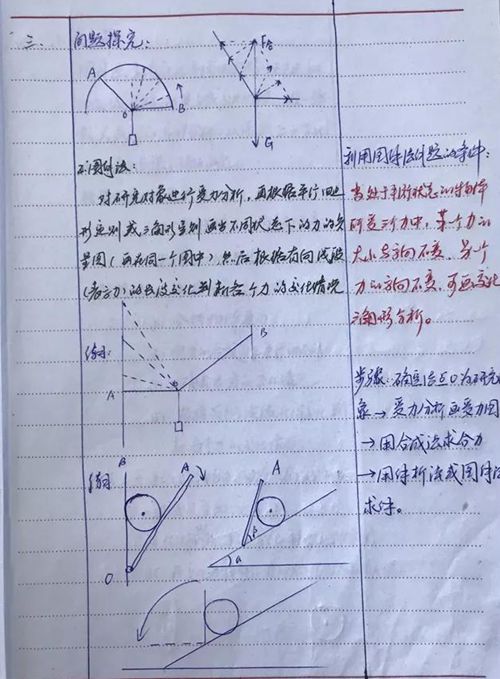 三、
问题探究：
A
B
O
F合
F
G
2.图解法：
对研究对象进行受力分析，再根据平行四边
形定则或三角形定则画出不同状态下的力的矢
量图（画在同一个图中），然后根据有向线段
（表示力）的长度变化判断各个力的变化情况
利用图解法解题的条件：
当处于平衡状态的物体
所受三个力中，某一个力的
大小与方向不变，另一个
力的方向不变，可画变化
三角形分析。
例：
A
B
步骤：确定结点O为研究对
象→受力分析画受力图
→用合成法求合力
→用解析法或图解法
求解。
B
A
O
A